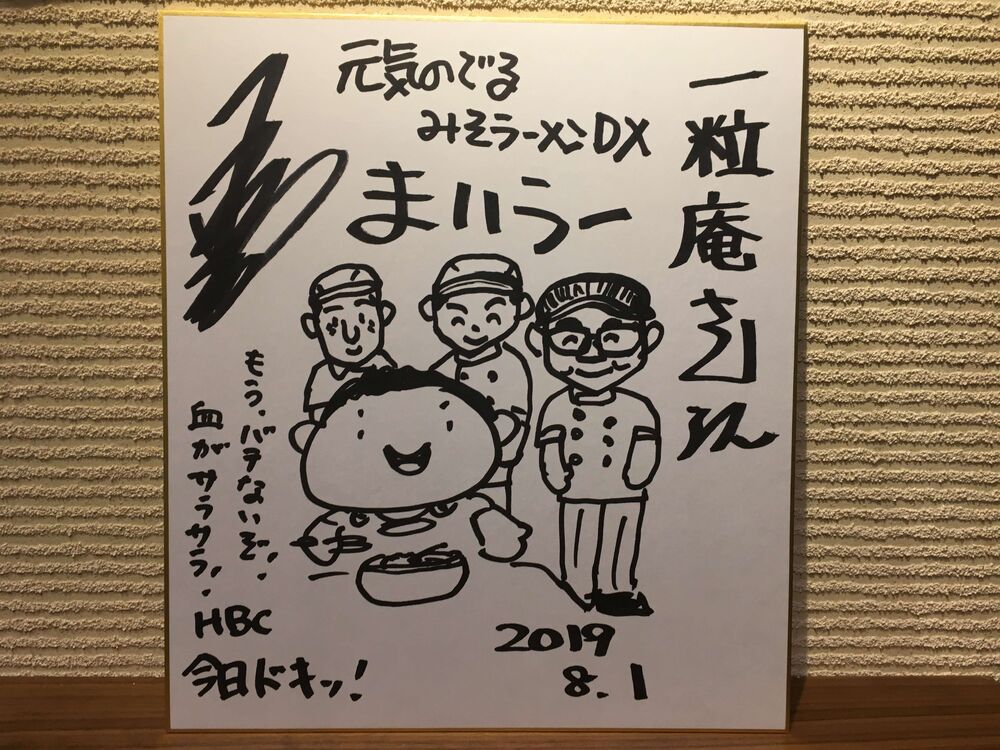 一粒庵さん江
元気のでる
みそラーメンDX
まいうー
もう、バテないぞ!
血がサラサラ!
HBC
今日ドキッ!
2019
8.1